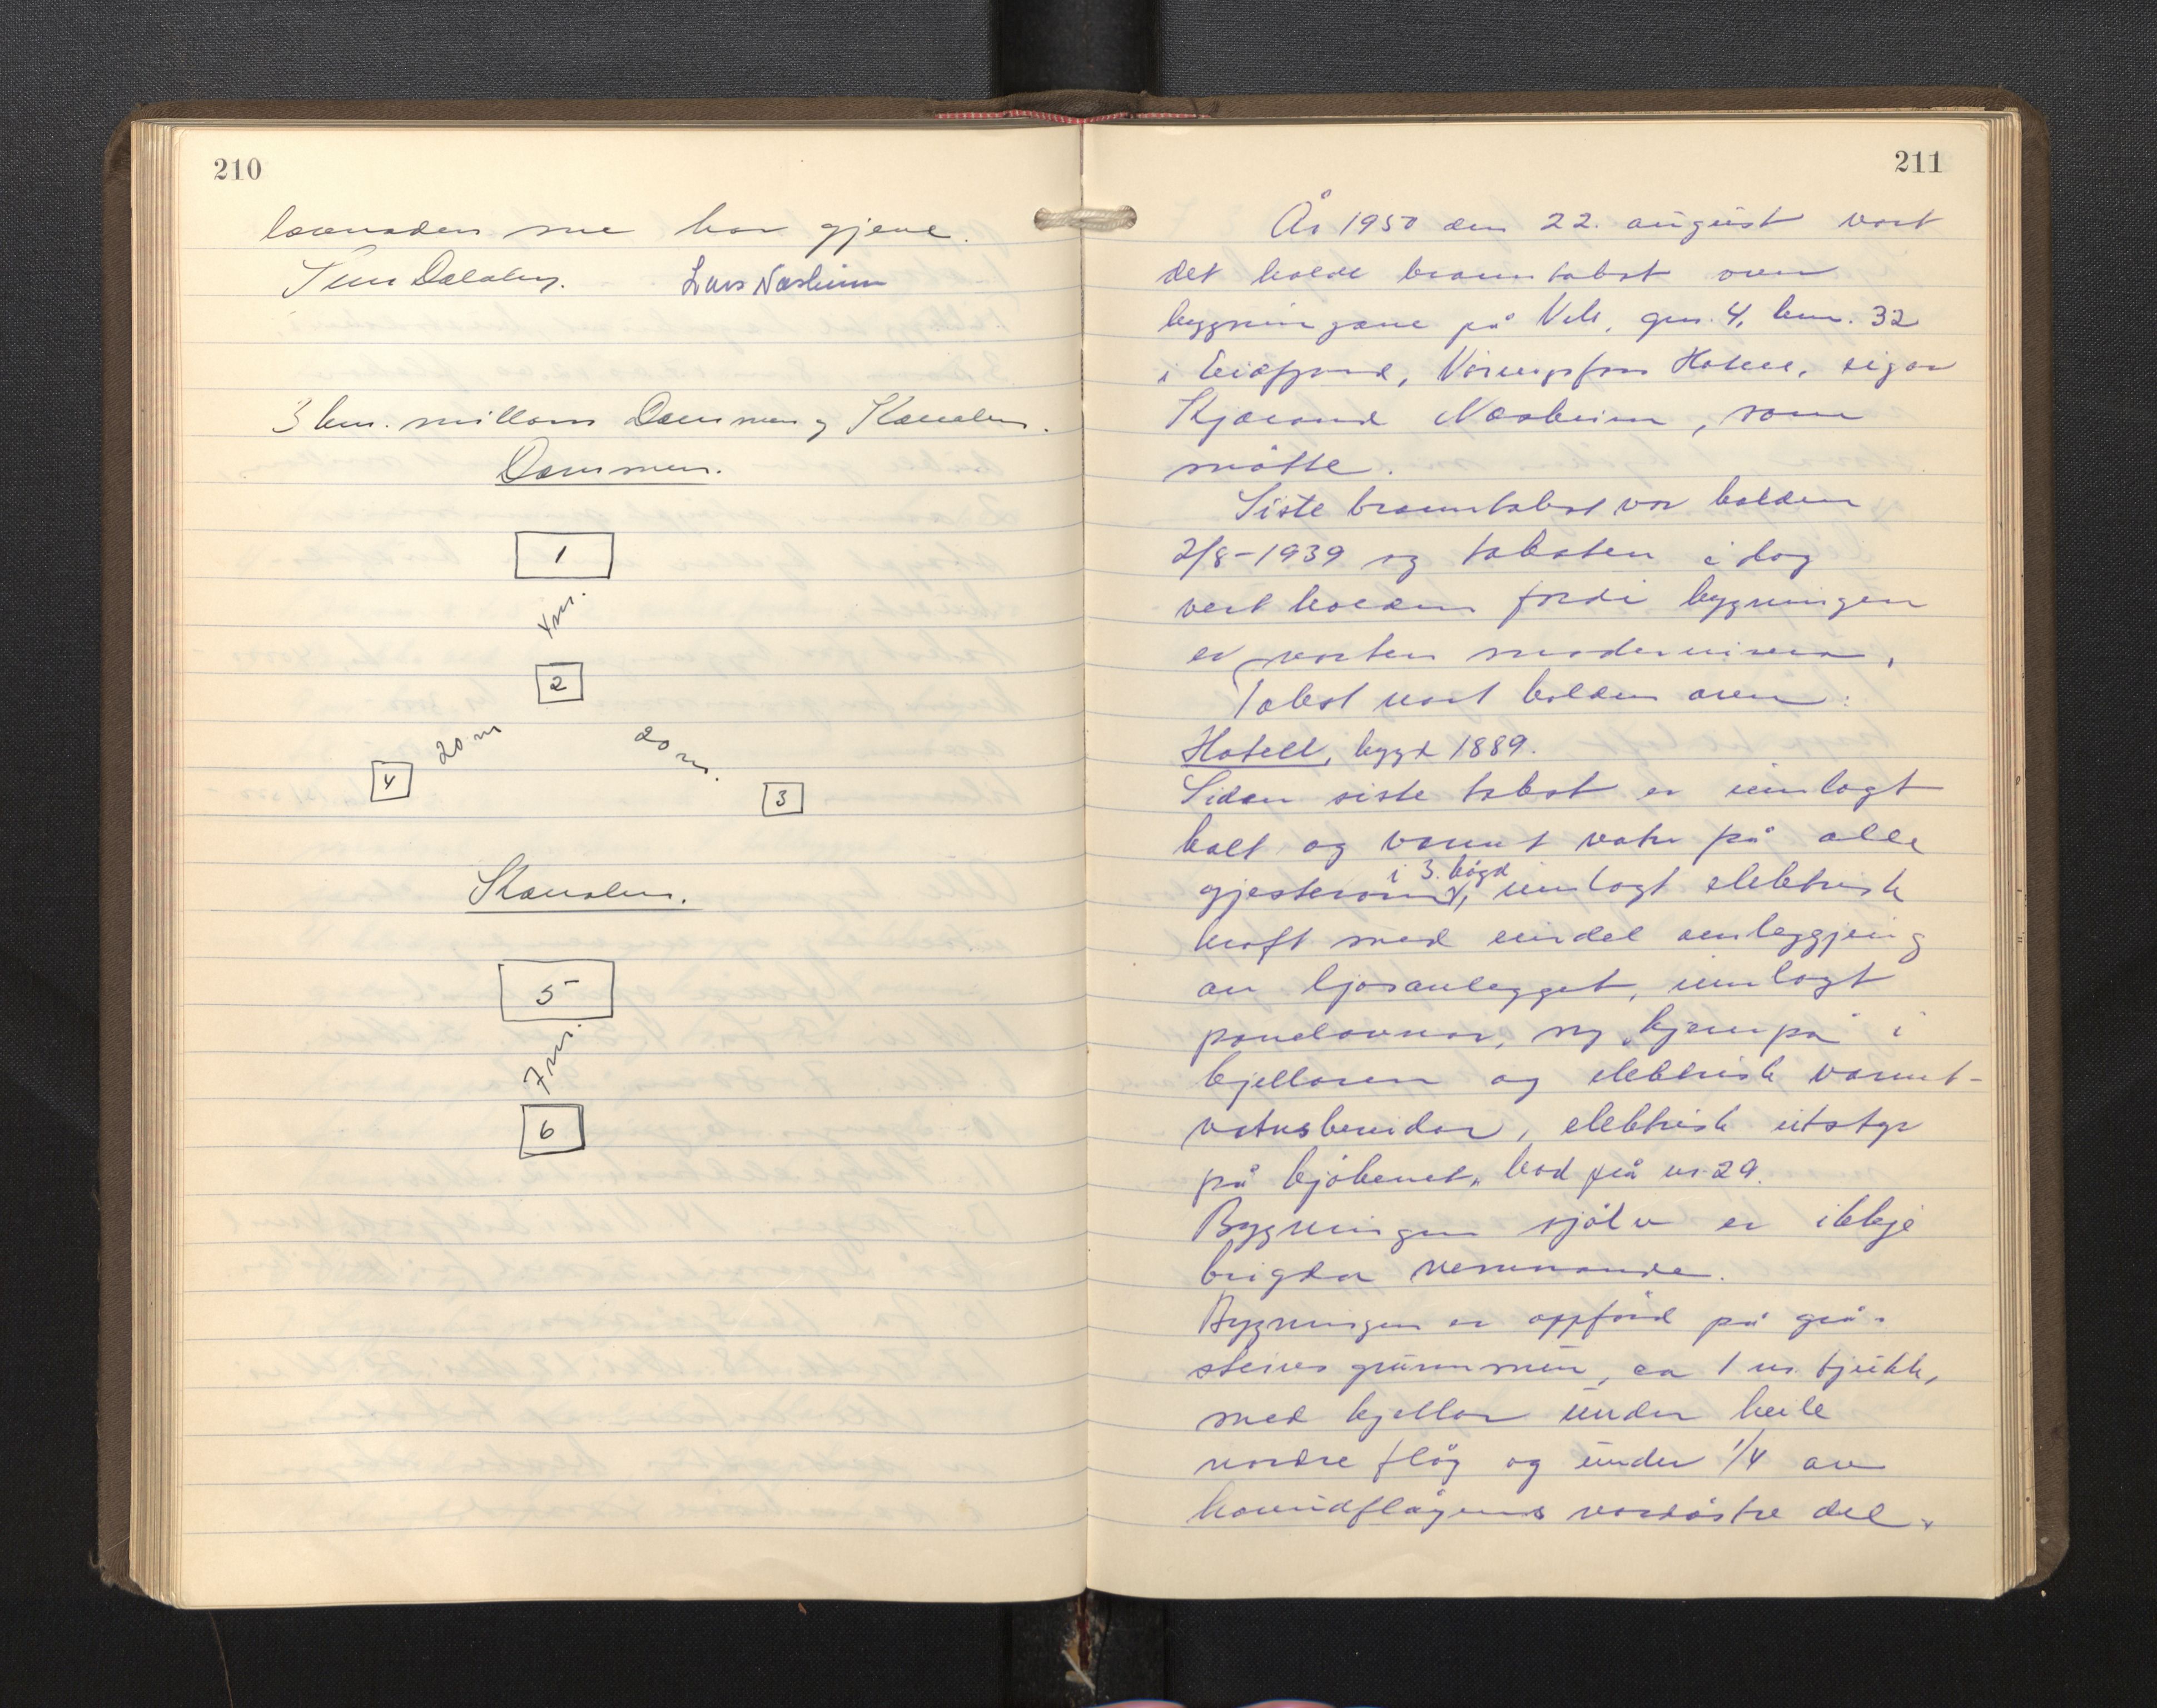 210
lovnaden me har gjeve.
Lars Næsheim
3 km. millom Dammen og Skaualen.
Dammen.
1
4 m.
2
20 m
20 m.
4
3
Skaualen.
5
7 m.
6
211
År 1950 den 22. august vart
det halde branntakst over
bygningane på Vik, gnr. 4, bnr. 32
i Eidfjord, Vöringsfoss Hotell, eigar
Kjærand Næsheim, som
møtte.
Siste branntakst var halden
2/8-1939 og taksten i dag
vert halden fordi bygningen
er vorten modernisera.
Takst vart halden over:
Hotell, bygd 1889.
Sidan siste takst er innlagt
kalt og varmt vatn på alle
i 3. høgd
gjesterom, innlagt elektrisk
kraft med eindel omleggjing
av ljosanlegget, innlagt
panelovnar, ny "kjempa" i
kjellaren og elektrisk varmt-
vatnsbereidar, elektrisk utstyr
på kjøkenet, bad på nr 29.
Bygningen sjølv er ikkje
brigda nemnande.
Bygningen er oppförd på grå-
steins grunnmur, ca 1 m. tjukk,
med kjellar under heile
nordre fløy og under 1/4 av
hovudfløyens nordøstre del.